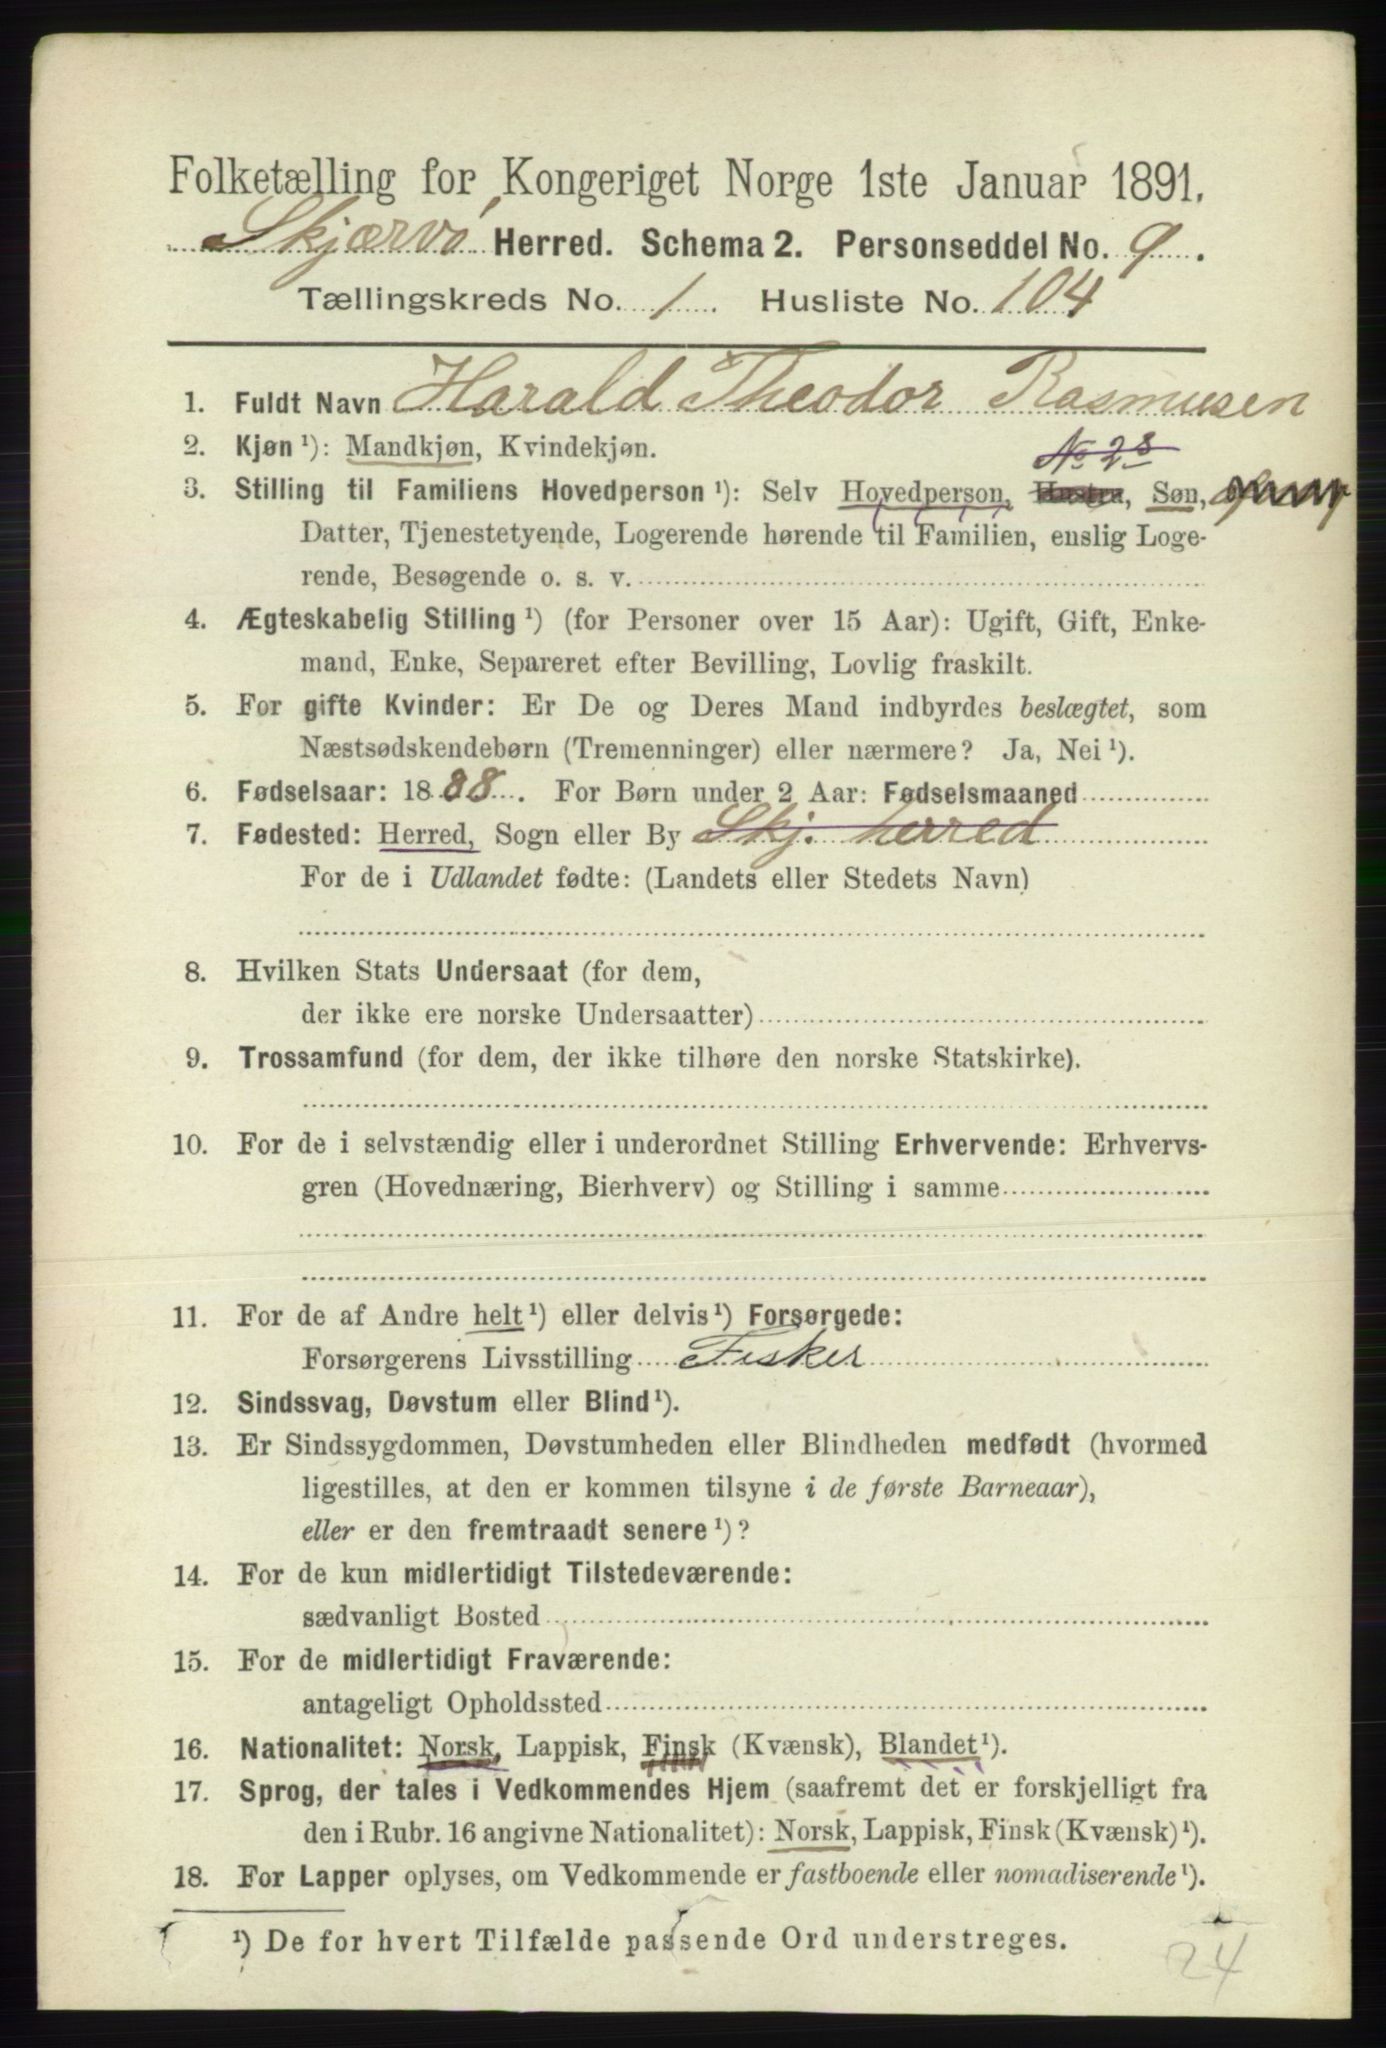 Folketælling for Kongeriget Norge 1ste Januar 1891.
Skjærvö Herred. Schema 2. Personseddel No. 9.
Tællingskreds No. 1. Husliste No. 104
1. Fuldt Navn Harald Theodor Rasmusen
2. Kjøn ¹): Mandkjøn, Kvindekjøn.
No 28
3. Stilling til Familiens Hovedperson ¹): Selv Hovedperson, Hustru, Søn,
Datter, Tjenestetyende, Logerende hørende til Familien, enslig Loge-
rende, Besøgende o. s. v.
4. Ægteskabelig Stilling ¹) (for Personer over 15 Aar): Ugift, Gift, Enke-
mand, Enke, Separeret efter Bevilling, Lovlig fraskilt.
5. For gifte Kvinder: Er De og Deres Mand indbyrdes beslægtet, som
Næstsødskendebørn (Tremenninger) eller nærmere? Ja, Nei ¹).
6. Fødselsaar: 1888. For Børn under 2 Aar: Fødselsmaaned
7. Fødested: Herred, Sogn eller By Skj. herred
For de i Udlandet fødte: (Landets eller Stedets Navn)
8. Hvilken Stats Undersaat (for dem,
der ikke ere norske Undersaatter)
9. Trossamfund (for dem, der ikke tilhøre den norske Statskirke).
10. For de i selvstændig eller i underordnet Stilling Erhvervende: Erhvervs-
gren (Hovednæring, Bierhverv) og Stilling i samme
11. For de af Andre helt ¹) eller delvis ¹) Forsørgede:
Forsørgerens Livsstilling Fisker
12. Sindssvag, Døvstum eller Blind ¹).
13. Er Sindssygdommen, Døvstumheden eller Blindheden medfødt (hvormed
ligestilles, at den er kommen tilsyne i de første Barneaar),
eller er den fremtraadt senere ¹)?
14. For de kun midlertidigt Tilstedeværende:
sædvanligt Bosted
15. For de midlertidigt Fraværende:
antageligt Opholdssted
16. Nationalitet: Norsk, Lappisk, Finsk (Kvænsk), Blandet ¹).
17. Sprog, der tales i Vedkommendes Hjem (saafremt det er forskjelligt fra
den i Rubr. 16 angivne Nationalitet): Norsk, Lappisk, Finsk (Kvænsk) ¹).
18. For Lapper oplyses, om Vedkommende er fastboende eller nomadiserende ¹).
¹) De for hvert Tilfælde passende Ord understreges.
24